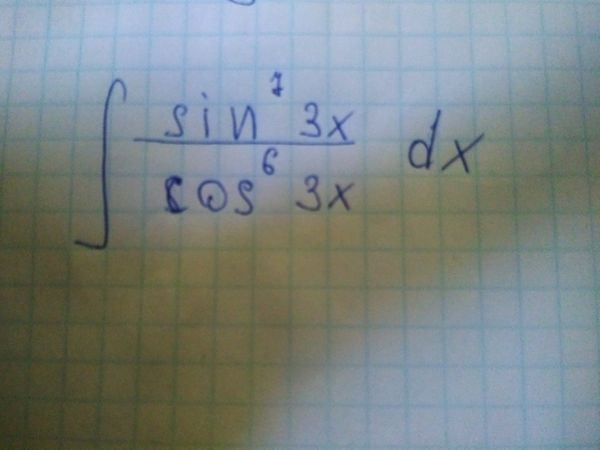 ∫ sin⁷ 3x / cos⁶ 3x dx